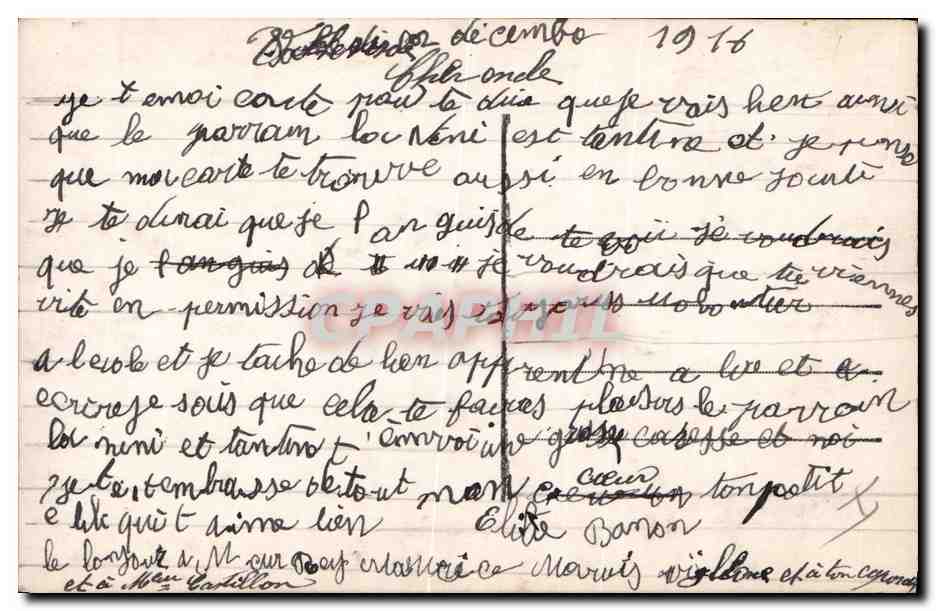 décembre 1916
je t emoi carte pour te dire que je vais bien ausi
que le parrain la Nini est tantine et je pense
que ma carte te trouve aussi en bonne sante
je te dirai que je languis de te voii je voudrais
que je languis de je voudrais que tu viennes
vite en permission je vais toujours volontier
a lecole et je tache de bien apprentire a lire et a
ecrire je sais que cela te faira plaisirs le parrain
la nini et tantine t'envoi une grosse caresse et moi
je t'embrasse de tout mon cœur ton petit
e lik qui t aime bien Elise Banon
le bonjour a M
et à Mme Castillon
CPAPHIL